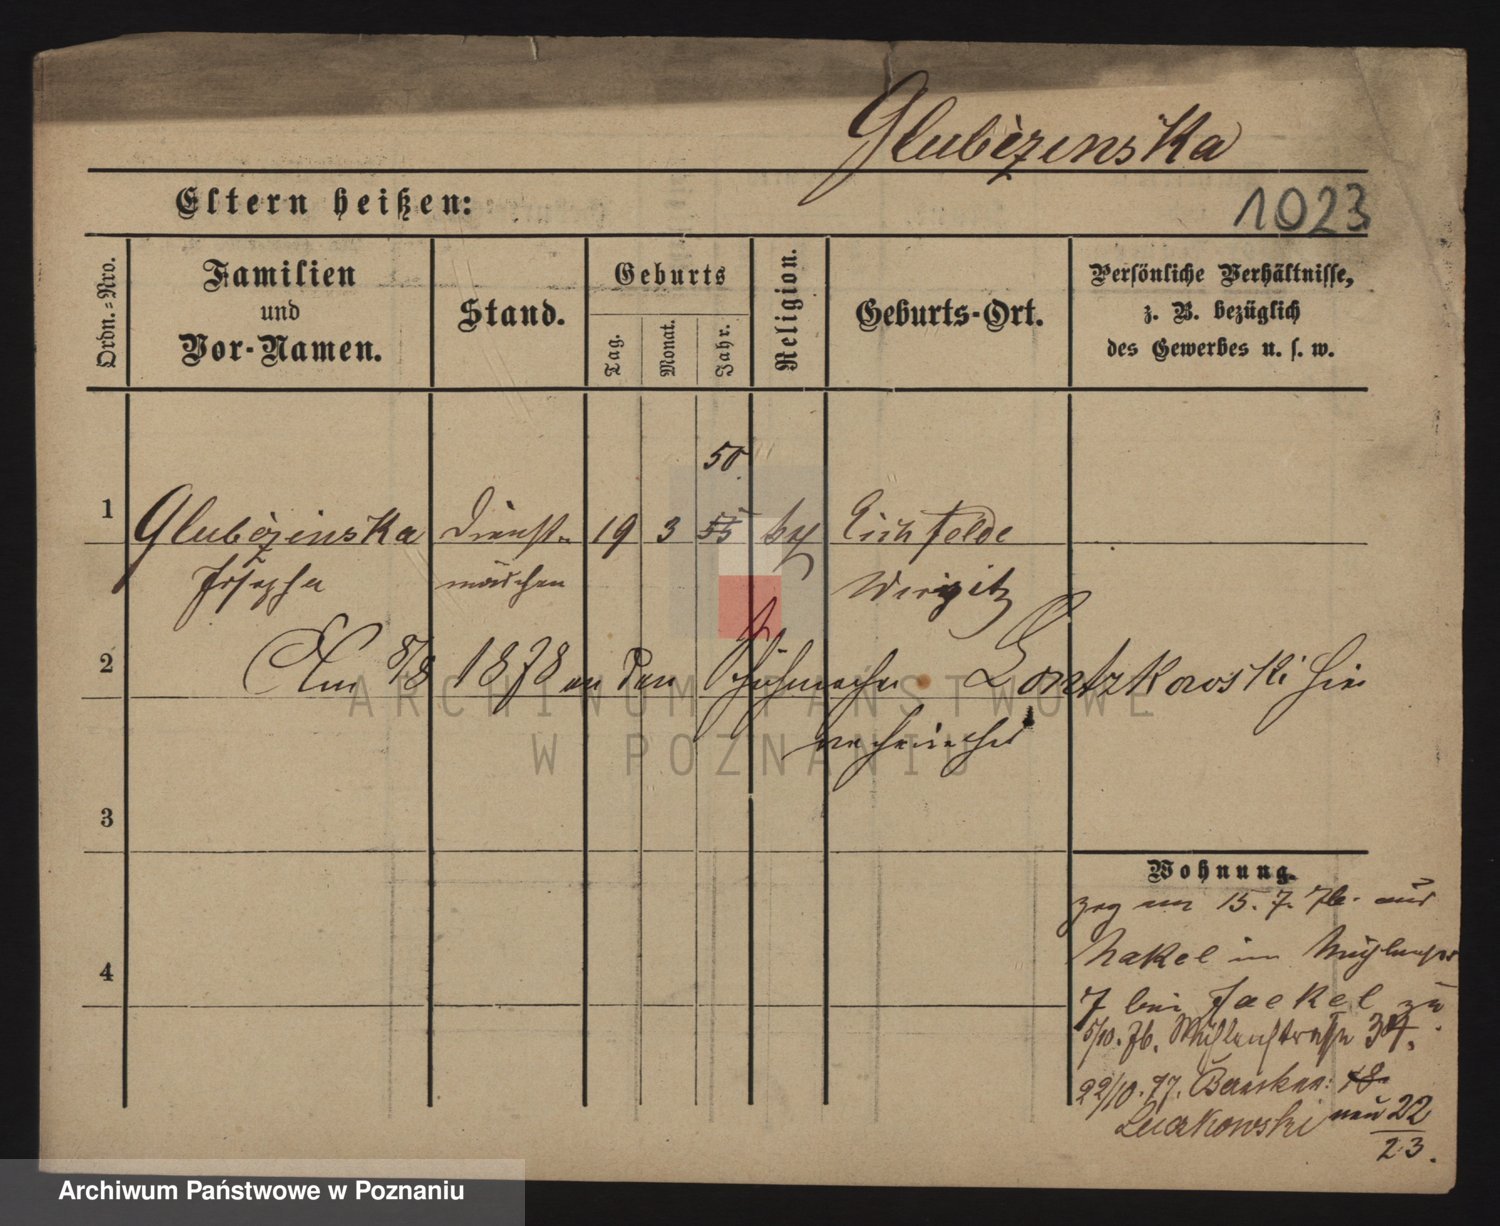 Glubèzenska
Eltern heißen:
1023
Ordn.-Nro.
Familien
und
Vor-Namen.
Stand.
Geburts
Tag.
Monat.
Jahr.
Religion.
Geburts-Ort.
Persönliche Verhältnisse,
z. B. bezüglich
des Gewerbes u. s. w.
50
1 Glubèzinska Dienst- 19 3 55 Eichfelde
Josepha mädchen Wirsitz
2 Am 8/8 1878 an den Schuhmacher Gontzkowski hier
verheirathet
ARCHIWUM PAŃSTWOWE
W POZNANIU
3
Wohnung.
zog am 15. 7. 76. aus
4 Nakel in
7 bei Jaekel zu
5/10. 76. Mühlenstrasse 34.
22/10. 77. Baecker. 18
Luczkowski neu 22
23.
Archiwum Państwowe w Poznaniu